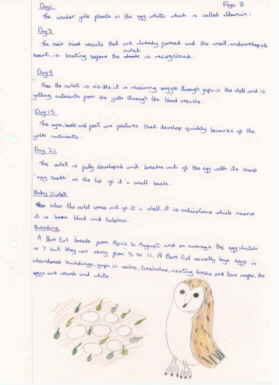 Page 2
Day 1
The under yolk floats in the egg white which is called albumin.
Day 3
The main blood vessels that are already formed and the small, undeveloped
heart, is beating before the owlet is recognised.
Day 9
Now the owlet is visible, it is receiving oxygen through gaps in the shell and is
getting nutrients from the yolk through the blood vessels.
Day 15
The eyes, beak and feet are features that develop quickly because of the
yolk nutrients.
Day 32
The owlet is fully developed and breaks out of the egg with its small
egg tooth on the top of its small beak.
Baby Owlet
When the owlet comes out of its shell, it is vulnerable which means
it is been blind and helpless.
Breeding
A Barn Owl breeds from April to August and on average the egg clutch
is 7 but they can vary from 3 to 11. A Barn Owl usually lays eggs in
abandoned buildings, gaps in cabins, treeholes, nesting boxes and large cages, the
eggs are round and white.